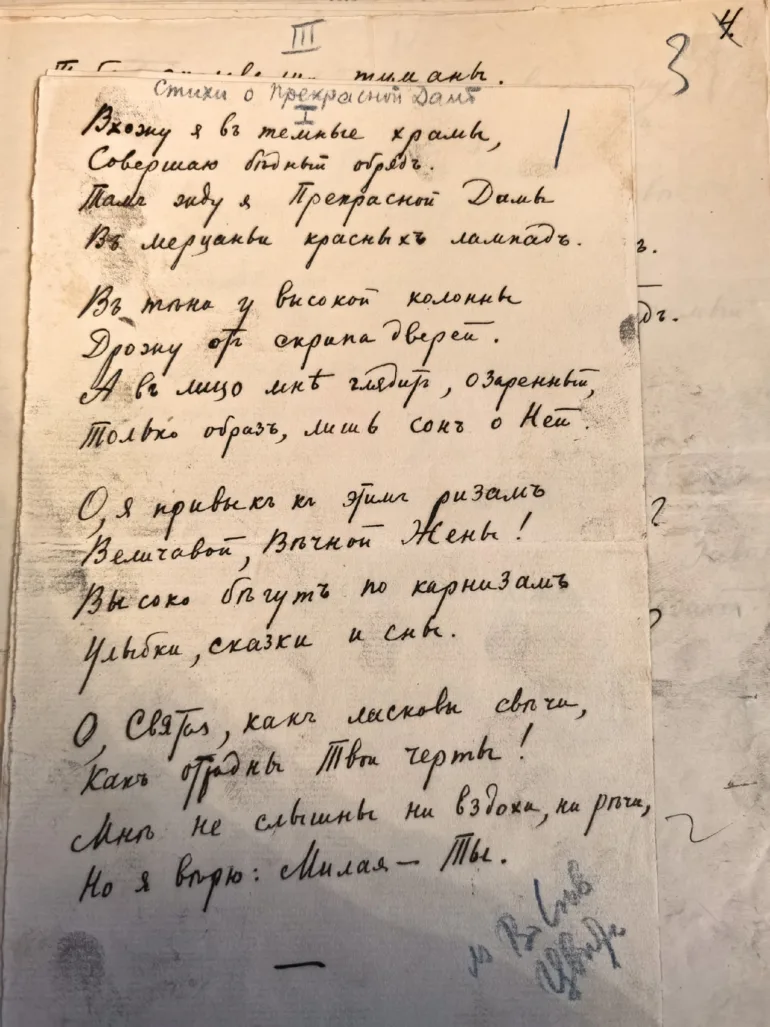 III
4.
3
туманы.
Стихи о Прекрасной Дамѣ
I
Вхожу я въ темные храмы,
Совершаю бѣдный обрядъ.
Тамъ жду я Прекрасной Дамы
Въ мерцаньи красныхъ лампадъ.
Въ тѣни у высокой колонны
Дрожу отъ скрипа дверей.
А въ лицо мнѣ глядитъ, озаренный,
Только образъ, лишь сонъ о Ней.
О, я привыкъ къ этимъ ризамъ
Величавой, Вѣчной Жены!
Высоко бѣгутъ по карнизамъ
Улыбки, сказки и сны.
О, Святая, какъ ласковы свѣчи,
Какъ отрадны Твои черты!
Мнѣ не слышны ни вздохи, ни рѣчи,
Но я вѣрю: Милая — Ты.